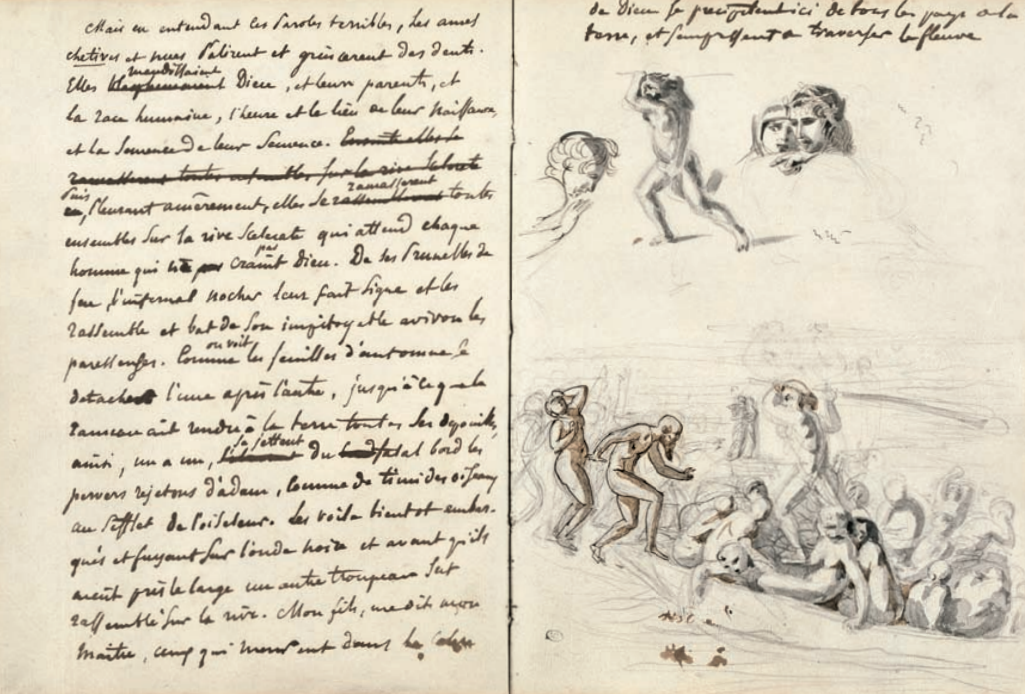 Mais en entendant ces Paroles terribles, les ames
chetives et nues Palirent et grincerent des dents.
maudissaient
Elles Dieu, et leurs parents, et
la race humaine, l'heure et le lieu de leur Naissance,
et la Semence de leur Semence. Ensuite elles se
ramasserent toutes ensembles sur la rive
Puis ramasserent
en, Pleurant amèrement, elles se toutes
ensembles Sur la rive Scelerate qui attend chaque
pas
homme qui craint Dieu. De ses Prunelles de
feu l'infernal nocher leur fait Signe et les
rassemble et bat de Son impitoyable aviron les
on voit
paresseuses. Comme les feuilles d'automne se
detachent l'une après l'autre, jusqu'à ce que le
rameau ait rendu à la terre toutes Ses depouilles,
se jettent
ainsi, un a un, du fatal bord les
pervers rejetons d'adam, Comme de timides oiseaux
au Sifflet de l'oiseleur. Les voila bientot embar-
qués et fuyant Sur l'onde noire et avant qu'ils
aient pris le large un autre troupeau Est
rassemblé Sur la rive. Mon fils, me dit mon
Maitre, ceux qui meurent dans la
de Dieu se precipitent ici de tous les pays de la
terre, et s'empressent a traverser le fleuve